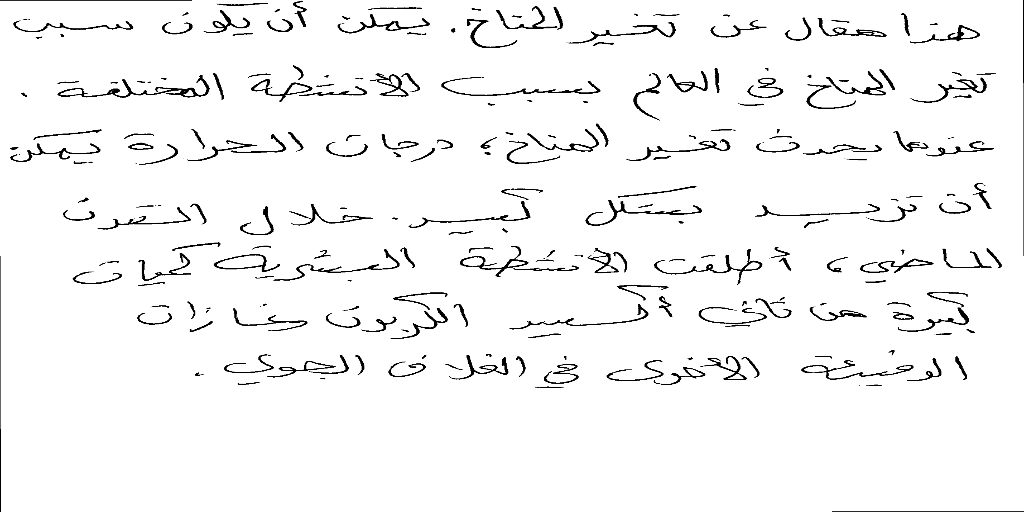 هذا مقال عن تغير المناخ. يمكن أن يكون سبب
تغير المناخ في العالم بسبب الأنشطة المختلفة .
عندما يحدث تغير المناخ، درجات الحرارة يمكن
أن تزيد بشكل كبير. خلال القرن
الماضي، أطلقت الأنشطة البشرية كميات
كبيرة من ثاني أكسيد الكربون وغازات
الدفيئة الأخرى في الغلاف الجوي .